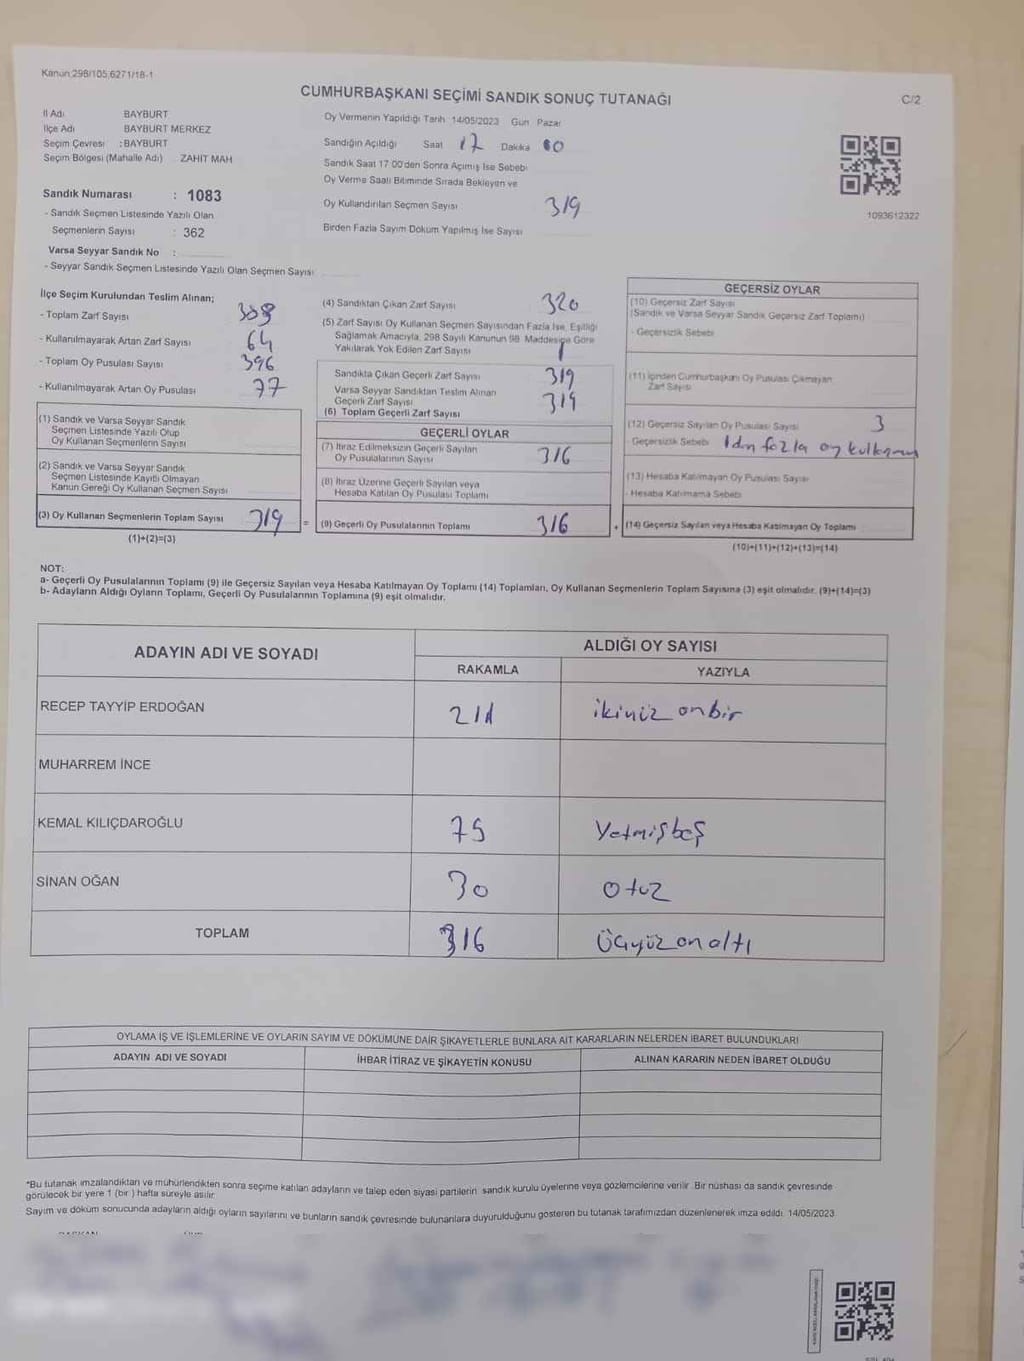 Kanun:298/105,6271/18-1
CUMHURBAŞKANI SEÇİMİ SANDIK SONUÇ TUTANAĞI
C/2
İl Adı BAYBURT
İlçe Adı BAYBURT MERKEZ
Seçim Çevresi : BAYBURT
Seçim Bölgesi (Mahalle Adı) ZAHİT MAH
Sandık Numarası : 1083
- Sandık Seçmen Listesinde Yazılı Olan
Seçmenlerin Sayısı : 362
Varsa Seyyar Sandık No :
- Seyyar Sandık Seçmen Listesinde Yazılı Olan Seçmen Sayısı
Oy Vermenin Yapıldığı Tarih 14/05/2023 Gün Pazar
Sandığın Açıldığı Saat 17 Dakika 00
Sandık Saat 17 00'den Sonra Açımış İse Sebebi
Oy Verme Saati Bitiminde Sırada Bekleyen ve
Oy Kullandırılan Seçmen Sayısı 319
Birden Fazla Sayım Döküm Yapılmış İse Sayısı
1093612322
İlçe Seçim Kurulundan Teslim Alınan;
- Toplam Zarf Sayısı
- Kullanılmayarak Artan Zarf Sayısı 64
- Toplam Oy Pusulası Sayısı 396
- Kullanılmayarak Artan Oy Pusulası 77
(1) Sandık ve Varsa Seyyar Sandık
Seçmen Listesinde Yazılı Olup
Oy Kullanan Seçmenlerin Sayısı
(2) Sandık ve Varsa Seyyar Sandık
Seçmen Listesinde Kayıtlı Olmayan
Kanun Gereği Oy Kullanan Seçmen Sayısı
(3) Oy Kullanan Seçmenlerin Toplam Sayısı 319 =
(1)+(2)=(3)
(4) Sandıktan Çıkan Zarf Sayısı 320
(5) Zarf Sayısı Oy Kullanan Seçmen Sayısından Fazla İse, Eşitliği
Sağlamak Amacıyla, 298 Sayılı Kanunun 98. Maddesine Göre
Yakılarak Yok Edilen Zarf Sayısı 1
Sandıkta Çıkan Geçerli Zarf Sayısı 319
Varsa Seyyar Sandıktan Teslim Alınan
Geçerli Zarf Sayısı
(6) Toplam Geçerli Zarf Sayısı 319
GEÇERLİ OYLAR
(7) İtiraz Edilmeksizin Geçerli Sayılan
Oy Pusulalarının Sayısı 316
(8) İtiraz Üzerine Geçerli Sayılan veya
Hesaba Katılan Oy Pusulası Toplamı
(9) Geçerli Oy Pusulalarının Toplamı 316 +
GEÇERSİZ OYLAR
(10) Geçersiz Zarf Sayısı
(Sandık ve Varsa Seyyar Sandık Geçersiz Zarf Toplamı)
- Geçersizlik Sebebi
(11) İçinden Cumhurbaşkanı Oy Pusulası Çıkmayan
Zarf Sayısı
(12) Geçersiz Sayılan Oy Pusulası Sayısı 3
- Geçersizlik Sebebi 1 den fazla oy
(13) Hesaba Katılmayan Oy Pusulası Sayısı
- Hesaba Katılmama Sebebi
(14) Geçersiz Sayılan veya Hesaba Katılmayan Oy Toplamı
(10)+(11)+(12)+(13)=(14)
NOT:
a- Geçerli Oy Pusulalarının Toplamı (9) ile Geçersiz Sayılan veya Hesaba Katılmayan Oy Toplamı (14) Toplamları, Oy Kullanan Seçmenlerin Toplam Sayısına (3) eşit olmalıdır. (9)+(14)=(3)
b- Adayların Aldığı Oyların Toplamı, Geçerli Oy Pusulalarının Toplamına (9) eşit olmalıdır.
ADAYIN ADI VE SOYADI ALDIĞI OY SAYISI
RAKAMLA YAZIYLA
RECEP TAYYİP ERDOĞAN 211 ikiyüz onbir
MUHARREM İNCE
KEMAL KILIÇDAROĞLU 75 Yetmişbeş
SİNAN OĞAN 30 Otuz
TOPLAM 316 Üçyüz on altı
OYLAMA İŞ VE İŞLEMLERİNE VE OYLARIN SAYIM VE DÖKÜMÜNE DAİR ŞİKAYETLERLE BUNLARA AİT KARARLARIN NELERDEN İBARET BULUNDUKLARI
ADAYIN ADI VE SOYADI İHBAR İTİRAZ VE ŞİKAYETİN KONUSU ALINAN KARARIN NEDEN İBARET OLDUĞU
*Bu tutanak imzalandıktan ve mühürlendikten sonra seçime katılan adayların ve talep eden siyasi partilerin sandık kurulu üyelerine veya gözlemcilerine verilir. Bir nüshası da sandık çevresinde
görülecek bir yere 1 (bir ) hafta süreyle asılır.
Sayım ve döküm sonucunda adayların aldığı oyların sayılarını ve bunların sandık çevresinde bulunanlara duyurulduğunu gösteren bu tutanak tarafımızdan düzenlenerek imza edildi. 14/05/2023